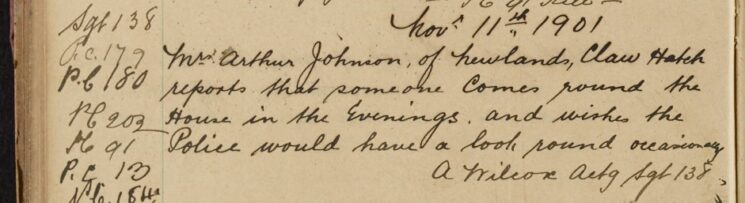 Sgt 138
Novr 11th, 1901
P.C. 179
Mrs Arthur Johnson, of Newlands, Claw Hatch
P.C 180
reports that someone Comes round the
PC 202
House in the Evenings. and wishes the
PC 91
Police would have a look round occasionally
P.C 13
A Wilcox Actg Sgt 138.